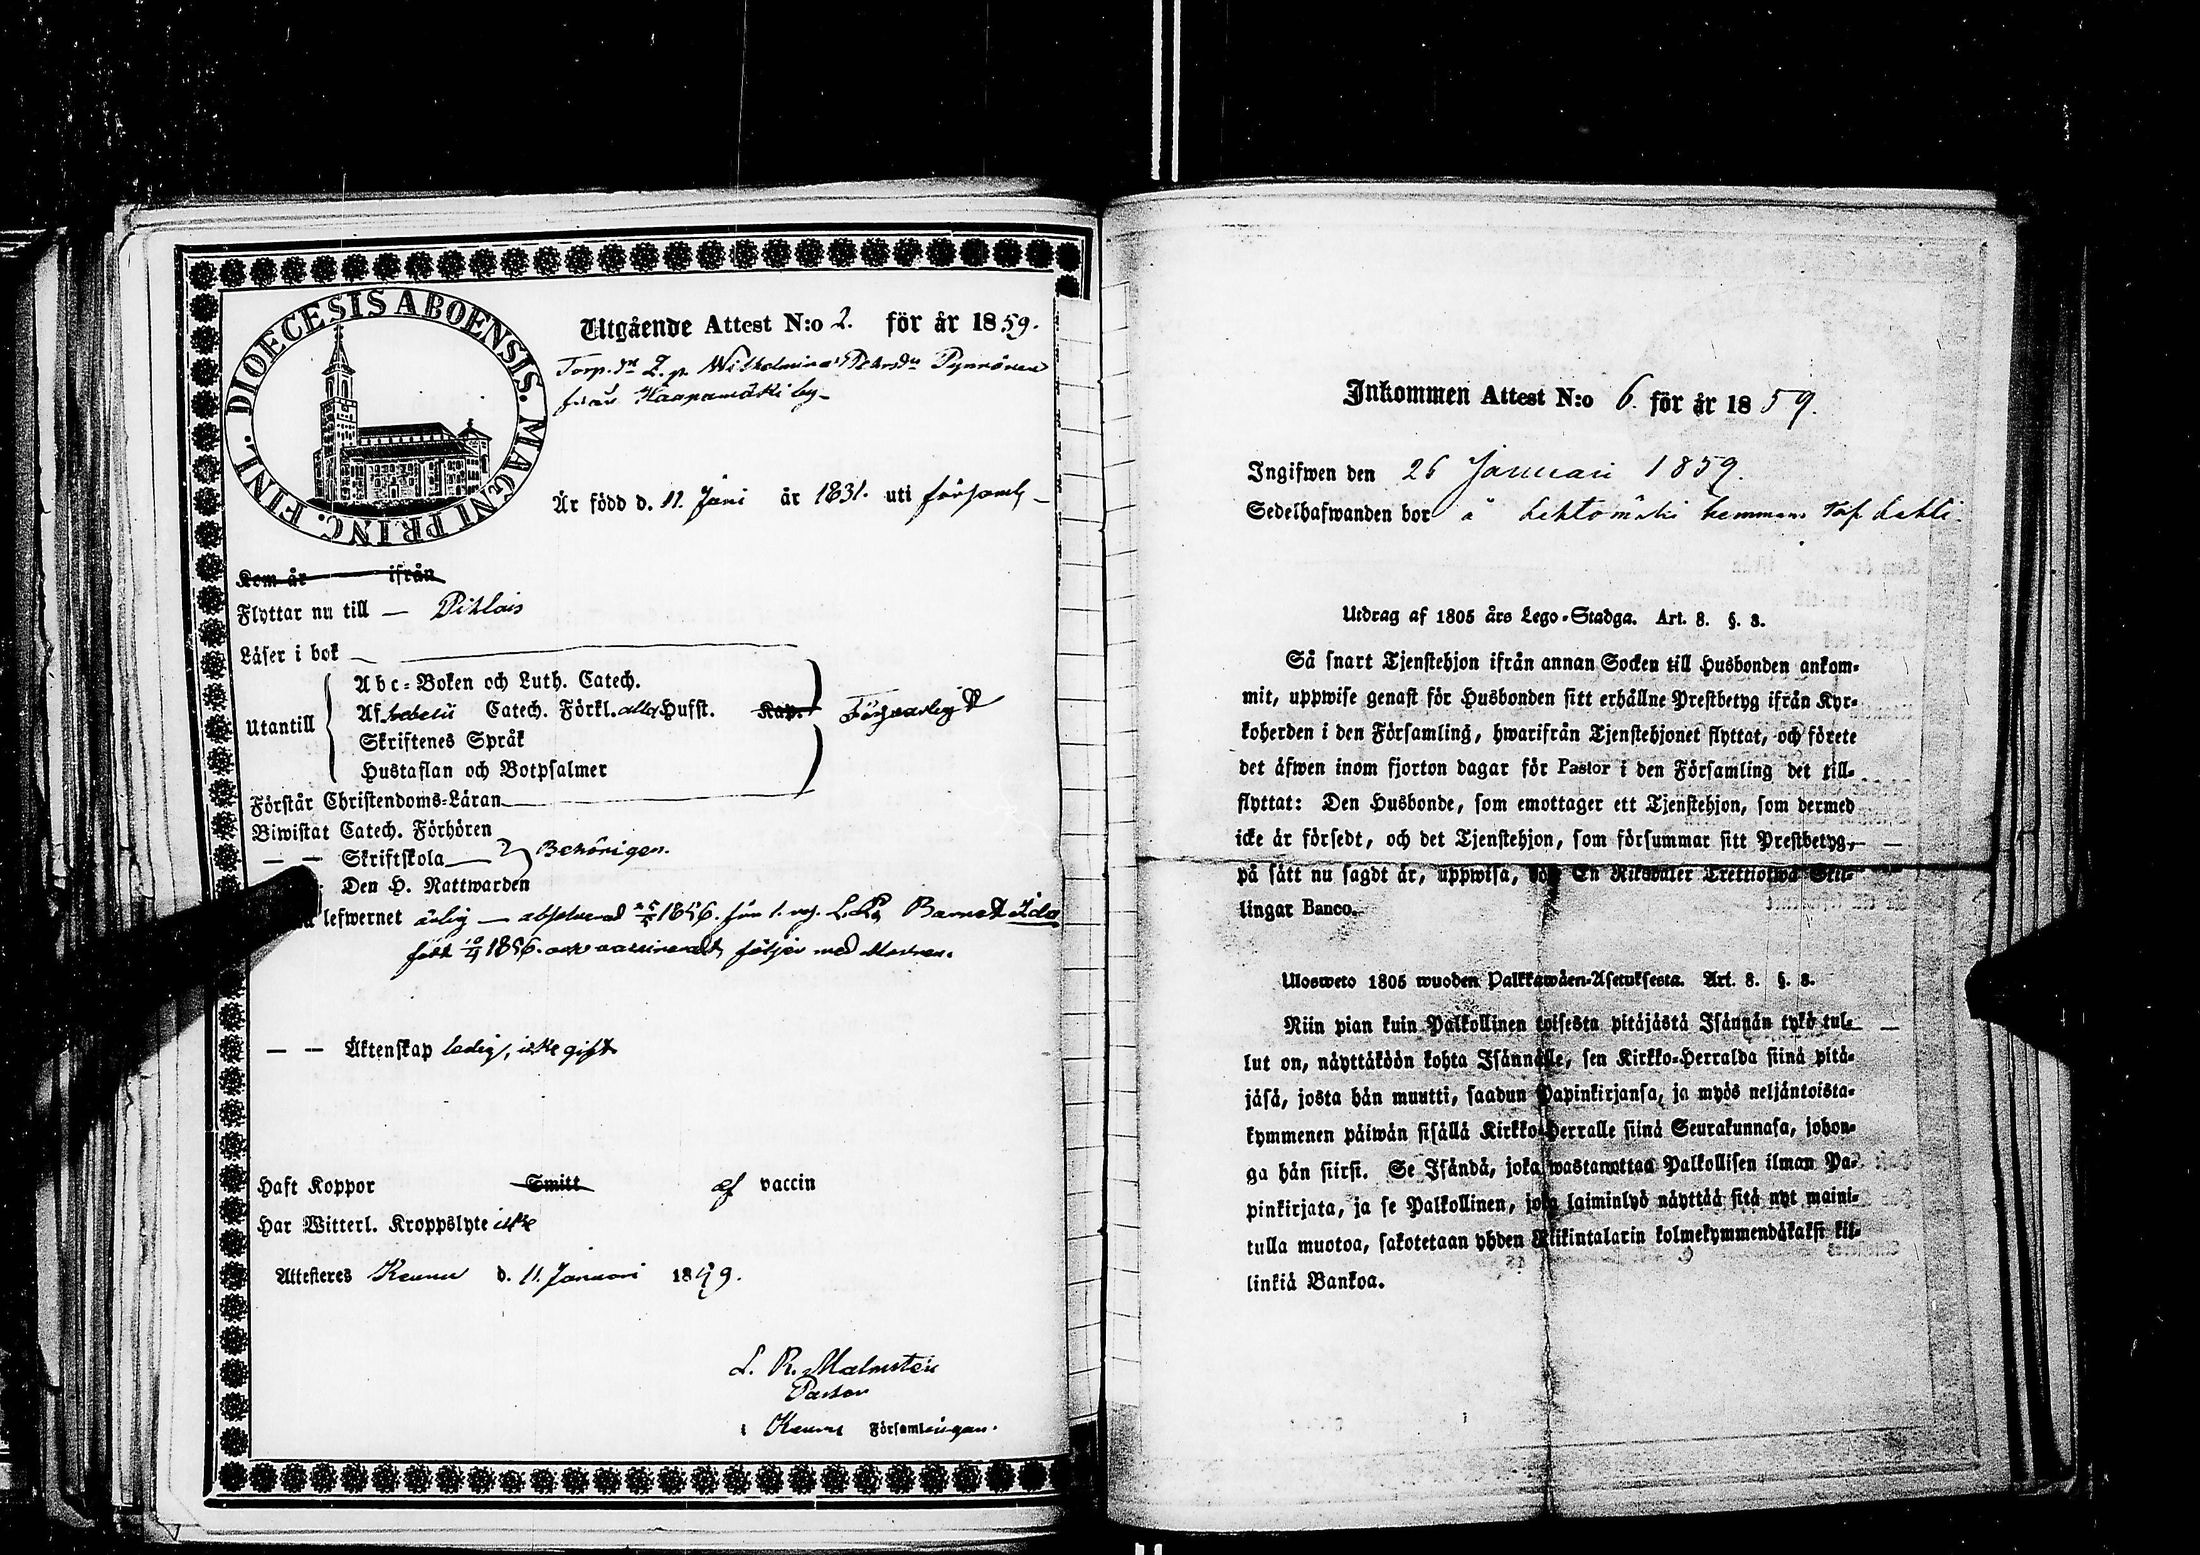 DIOECESIS ABOENSIS. MAGNI PRINC. FINL.
Utgående Attest N:o 2. för år 1859.
Torp. dr L. p. Wilhelmina Pehrsdr Pynnönen
från Haapamäki by
Är född d. 11. Juni år 1831. uti församl
Kom år ifrån
Flyttar nu till — Pihlais
Läser i bok
Utantill
Abc-Boken och Luth. Catech.
Af Svebelii Catech. Förkl. alla Hufst. Kap. Försvarligt
Skriftenes Språk
Hustaflan och Botpsalmer
Förstår Christendoms-Läran
Biwistat Catech. Förhören
— — Skriftskola Behörigen.
Den H. Nattwarden
lefwernet ärlig — absolverad 1856. för 1. L. Barnet Ida
född 1856. och vaccineradt, följer med Modren.
— — Äktenskap ledig, icke gift
Haft Koppor Smitt af vaccin
Har Witterl. Kroppslyte icke
Attesteres Keuru d. 11. Januari 1859.
L. R. Malmstén
Pastor
i Keuru Församlingen.
Inkommen Attest N:o 6. för år 1859.
Ingifwen den 26 Januari 1859.
Sedelhafwanden bor å Lehtomäki hemmans Torp Lahti.
Utdrag af 1805 års Lego-Stadga. Art. 8. §. 3.
Så snart Tjenstehjon ifrån annan Socken till Husbonden ankom-
mit, uppwise genast för Husbonden sitt erhållne Prestbetyg ifrån Kyr-
koherden i den Församling, hwarifrån Tjenstehjonet flyttat, och förete
det äfwen inom fjorton dagar för Pastor i den Församling det till-
flyttat: Den Husbonde, som emottager ett Tjenstehjon, som dermed
icke är försedt, och det Tjenstehjon, som försummar sitt Prestbetyg,
på sätt nu sagdt är, uppwisa, En Riksdaler Trettiotwå Skil-
lingar Banco.
Ulosweto 1805 wuoden Palkkawäen-Asetuksesta. Art. 8. §. 3.
Niin pian kuin Palkollinen toisesta pitäjästä Isännän tykö tul-
lut on, näyttäköön kohta Isännälle, sen Kirkko-Herralda siinä pitä-
jäsä, josta hän muutti, saadun Papinkirjansa, ja myös neljäntoista-
kymmenen päiwän sisällä Kirkko-Herralle siinä Seurakunnasa, johon-
ga hän siirsi. Se Isändä, joka wastanottaa Palkollisen ilman Pa-
pinkirjata, ja se Palkollinen, joka laiminlyö näyttää sitä nyt maini-
tulla muotoa, sakotetaan yhden Riikintalarin kolmekymmendäkaksi kil-
linkiä Bankoa.